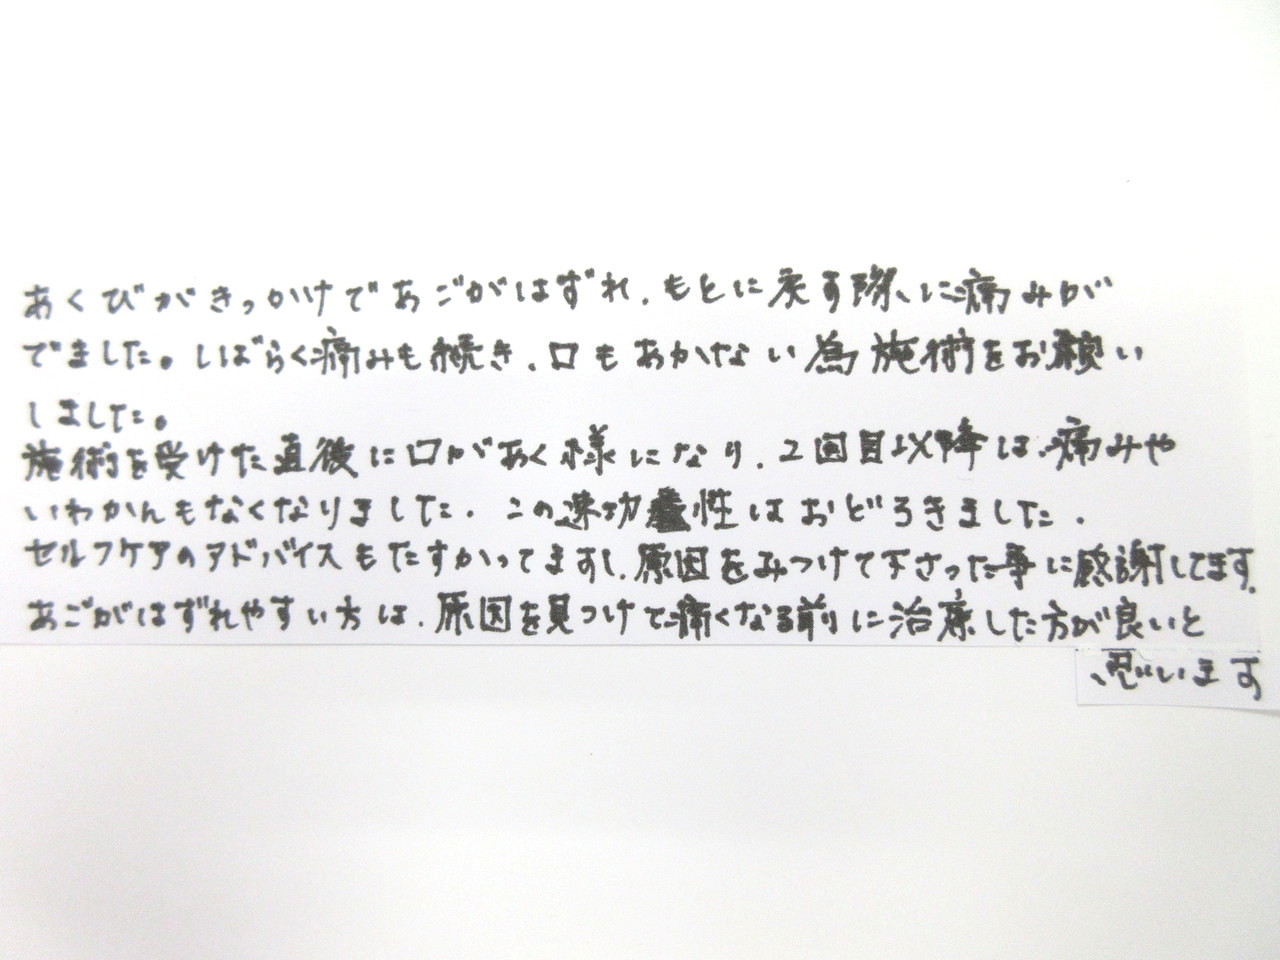 あくびがきっかけであごがはずれ、もとに戻す際に痛みが
でました。しばらく痛みも続き、口もあかない為施術をお願い
しました。
施術を受けた直後に口があく様になり、2回目以降は痛みや
いわかんもなくなりました。この速功性はおどろきました。
セルフケアのアドバイスもたすかってますし、原因をみつけて下さった事に感謝してます。
あごがはずれやすい方は、原因を見つけて痛くなる前に治療した方が良いと
思います